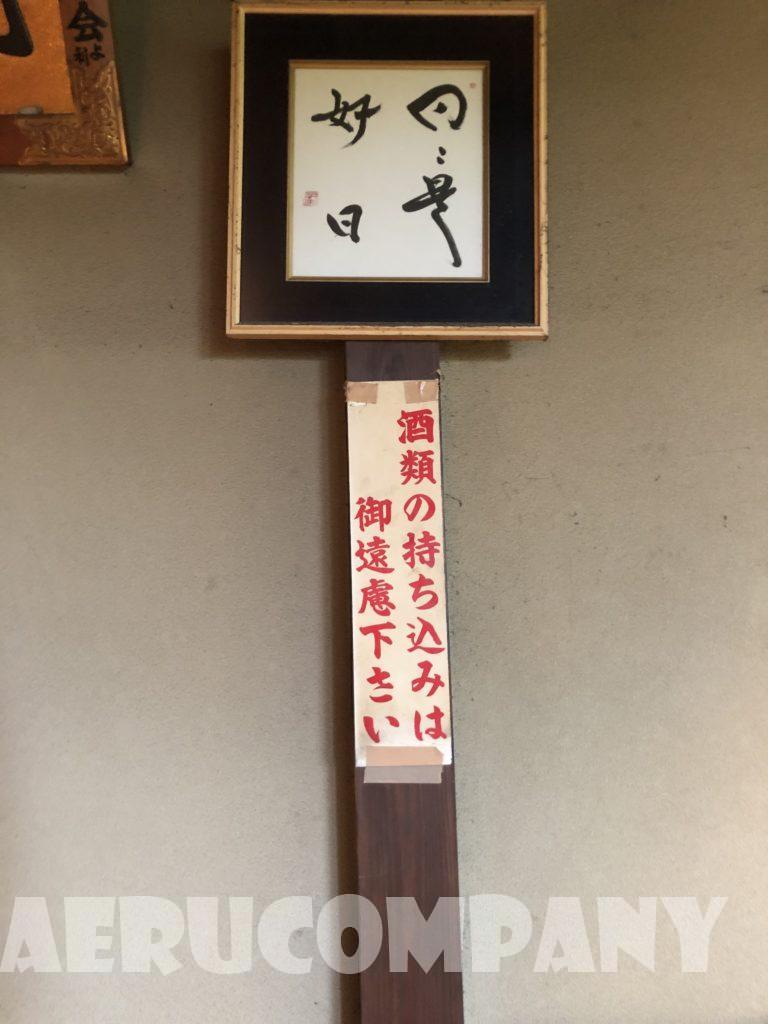 日々是
好日
酒類の持ち込みは
御遠慮下さい
会
AERUCOMPANY